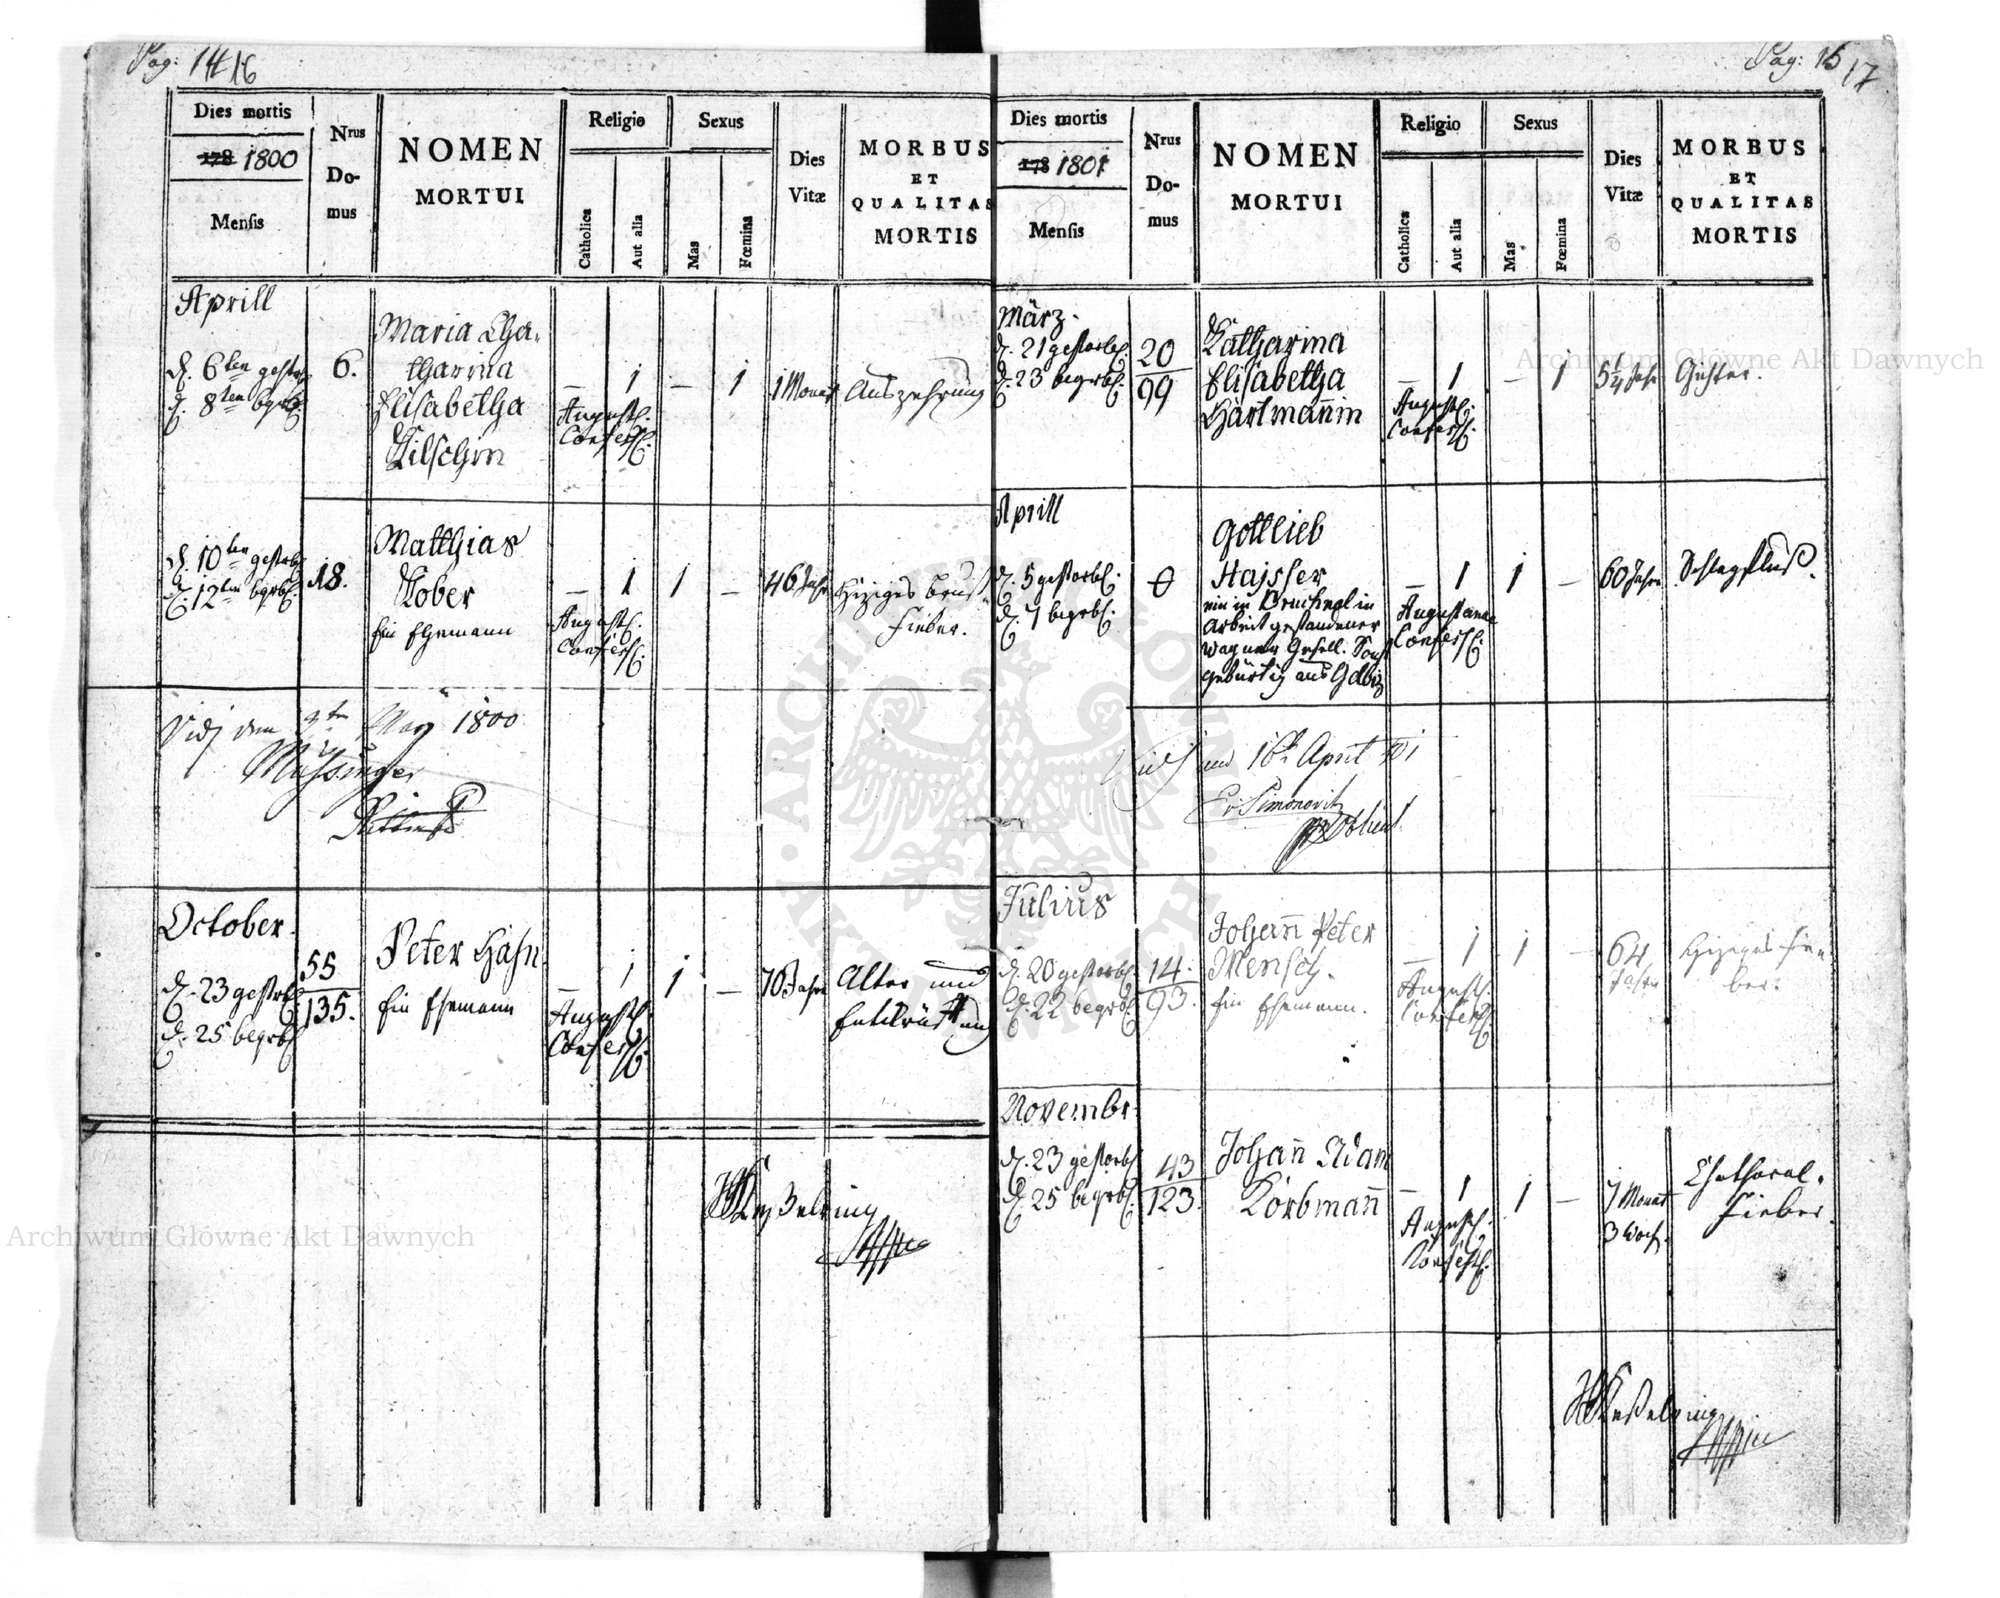 Pag: 14 16
Dies mortis
178 1800
Mensis
Nrus
Do-
mus
NOMEN
MORTUI
Religio
Catholica
Aut alia
Sexus
Mas
Fœmina
Dies
Vitæ
MORBUS
ET
QUALITAS
MORTIS
Aprill
d. 6ten gestorb.
d. 8ten begrb.
6.
Maria Cha-
tharina
Elisabetha
– 1 – 1
Augustl.
Confessl.
1 Monat
Auszehrung
d. 10ten gestorb.
d. 12ten bgrb.
18.
Matthias
Kober
Ein Ehemann
– 1 1 –
Augustl.
Confessl.
46 Jahr
Hiziges Brust
Fieber.
Vidi den 9ten May 1800
October.
d. 23 gestorb.
d. 25 begrb.
55
135.
Peter Hahn
Ein Ehemann
– 1 1 –
Augustl.
Confessl.
76 Jahre
Alter und
Entkräftung
Keßelring
Pag: 15 17
Dies mortis
178 1801
Mensis
Nrus
Do-
mus
NOMEN
MORTUI
Religio
Catholica
Aut alia
Sexus
Mas
Fœmina
Dies
Vitæ
MORBUS
ET
QUALITAS
MORTIS
März.
d. 21 gestorb.
d. 23 begrb.
20
99
Katharina
Elisabetha
Hartmannin
– 1 – 1
Augustl.
Confessl.
5 1/4 Jahr
Gichter.
Aprill
d. 5 gestorb.
d. 7 begrb.
0
Gottlieb
Hajsser
ein in Bruchsal in
Arbeit gestandener
Wagner Gesell.
gebürtig aus
– 1 1 –
Augustana
Confessl.
60 Jahre
Schlagfluß.
Vidi den 16t April 801
Julius
d. 20 gestorb.
d. 22 begrb.
14.
93.
Johann Peter
Mensch.
Ein Ehemann.
– 1 1 –
Augustl.
Confessl.
64
Jahre
Hiziges Fie-
ber.
Novembr.
d. 23 gestorb.
d. 25 begrb.
43
123.
Johann Adam
Korbmann
– 1 1 –
Augustl.
Confessl.
7 Monat
3 Woch.
Chatharal.
Fieber.
Keßelring
Archiwum Główne Akt Dawnych
Archiwum Główne Akt Dawnych
ARCHIWUM GŁÓWNE AKT DAWNYCH